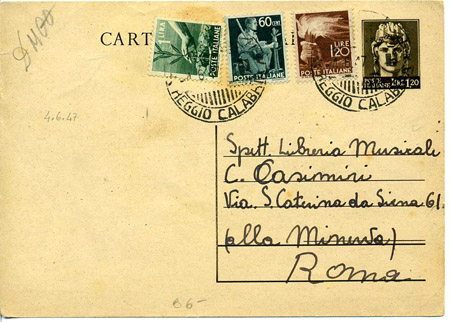 CART
1 LIRA
POSTE ITALIANE
60 CENT.
POSTE ITALIANE
LIRE
1,20
POSTE ITALIANE
LIRE 1,20
REGGIO CALABR
4.6.47
Spett. Libreria Musicale
C. Casimiri
Via S. Caterina da Siena 61
(alla Minerva)
Roma